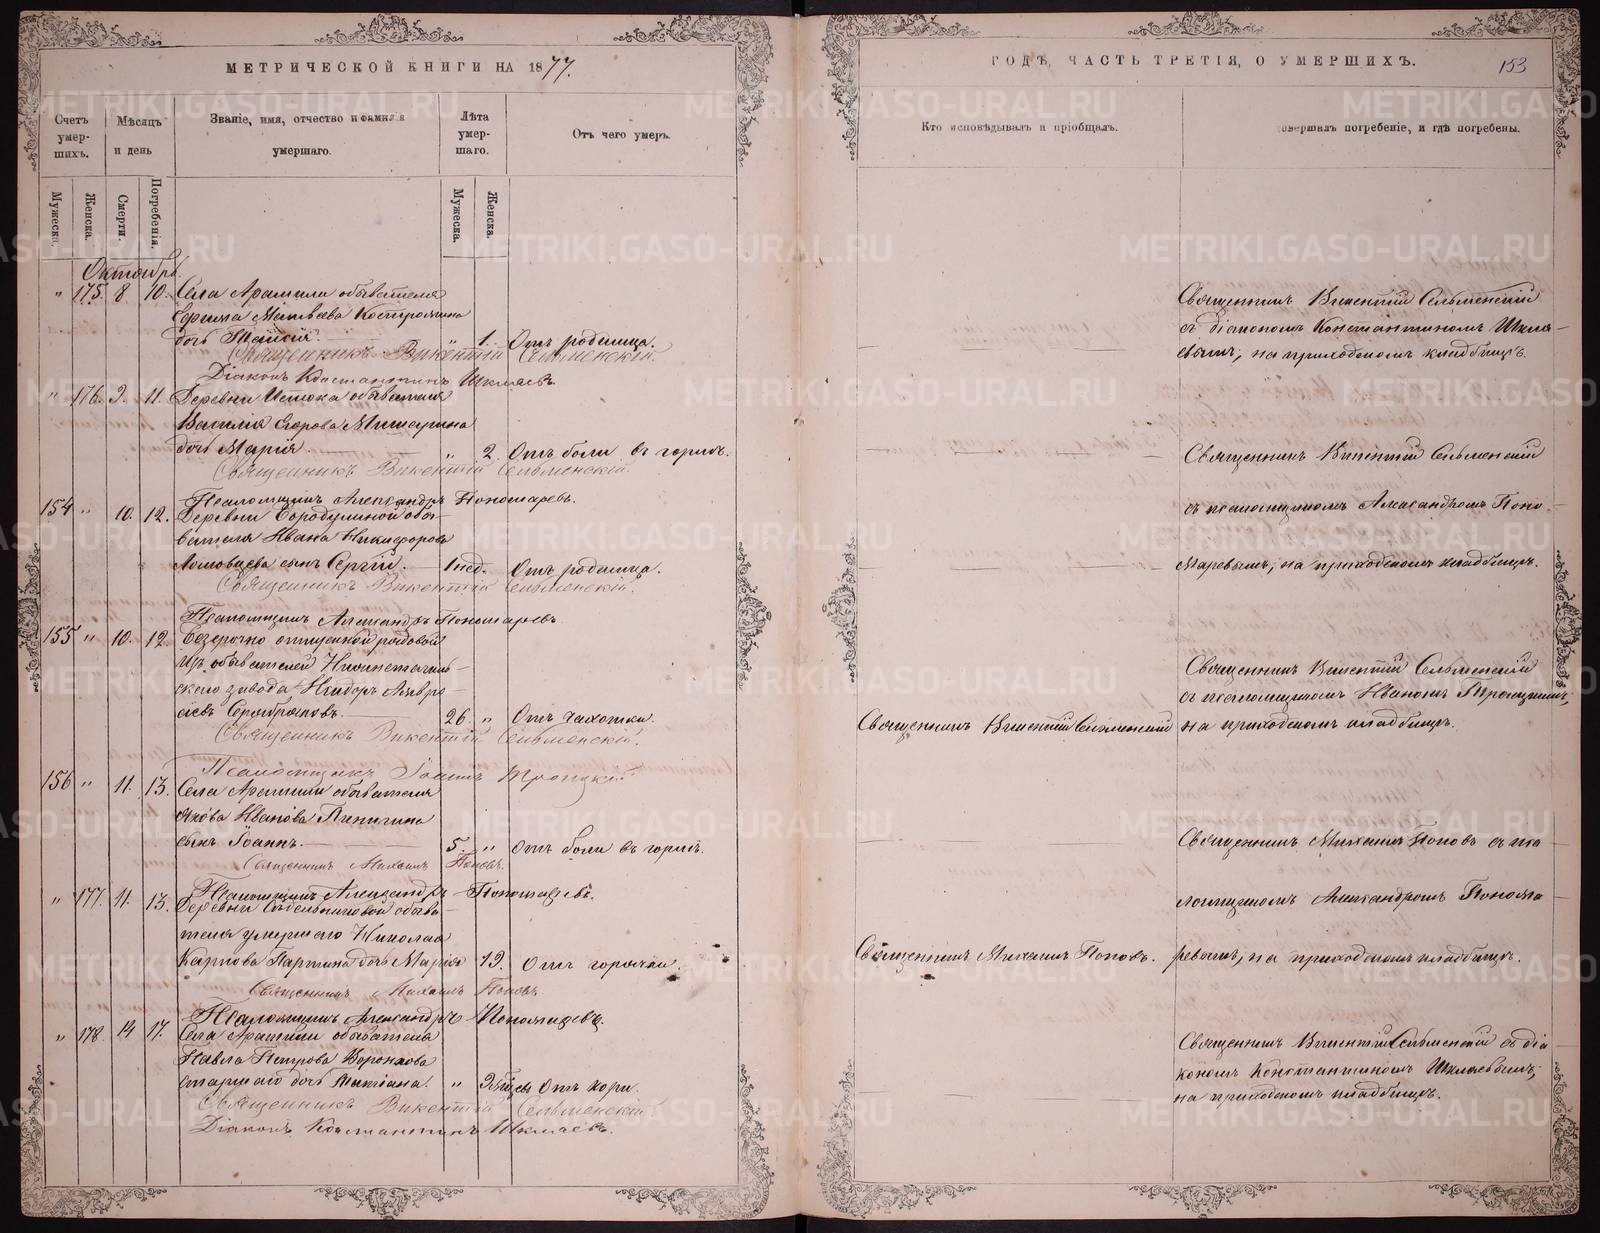 МЕТРИЧЕСКОЙ КНИГИ НА 1877.
Счетъ умер-шихъ.
Мѣсяцъ и день
Званіе, имя, отчество и фамилія умершаго.
Лѣта умер-шаго.
Отъ чего умеръ.
Мужеска.
Женска.
Смерти.
Погребенія.
Мужеска.
Женска.
Октябрь
" 175. 8 10. Села Арамили обывателя
Ефима Матвѣева Костромина
дочь Таисія. " 1. Отъ родимца.
Священникъ Викентій Сельменскій
Діаконъ Константинъ Шкляевъ
" 176. 9. 11. Деревни Истока обывателя
Василія Егорова Мишарина
дочь Марія " 2. Отъ боли въ горлѣ.
Священникъ Викентій Сельменскій.
Псаломщикъ Александръ Пономаревъ.
154 " 10. 12. Деревни Бородулиной обы-
вателя Ивана Никифорова
Ломовцева сынъ Сергій. 1 нед. Отъ родимца.
Священникъ Викентій Сельменскій.
Псаломщикъ Александръ Пономаревъ
155 " 10. 12. Безсрочно отпускной рядовой
изъ обывателей Нижнетагиль-
скаго завода Исидоръ Андре-
евъ Серебряковъ. 26. " Отъ чахотки.
Священникъ Викентій Сельменскій.
Псаломщикъ Іоаннъ Троицкій
156 " 11. 13. Села Арамили обывателя
Якова Иванова Пинигина
сынъ Іоаннъ. 5. " Отъ боли въ горлѣ.
Священникъ Михаилъ Поповъ.
Псаломщикъ Александръ Пономаревъ.
" 177. 11. 13. Деревни обыва-
теля умершаго Николая
Карпова Паршина дочь Марія 19. Отъ горячки.
Священникъ Михаилъ Поповъ.
Псаломщикъ Александръ Пономаревъ.
" 178. 14 17. Села Арамили обывателя
Павла Петрова Воронкова
старшаго дочь " Отъ кори.
Священникъ Викентій Сельменскій
Діаконъ Константинъ Шкляевъ.
ГОДѢ, ЧАСТЬ ТРЕТІЯ, О УМЕРШИХЪ.
153
Кто исповѣдывалъ и пріобщалъ.
совершалъ погребеніе, и гдѣ погребены.
Священникъ Викентій Сельменскій
съ діакономъ Константиномъ Шкляе-
вымъ, на приходскомъ кладбищѣ.
Священникъ Викентій Сельменскій
съ псаломщикомъ Александромъ Поно-
маревымъ, на приходскомъ кладбищѣ.
Священникъ Викентій Сельменскій
съ псаломщикомъ Иваномъ Троицкимъ,
Священникъ Викентій Сельменскій на приходскомъ кладбищѣ.
Священникъ Михаилъ Поповъ съ пса
ломщикомъ Александромъ Понома
Священникъ Михаилъ Поповъ. ревымъ, на приходскомъ кладбищѣ.
Священникъ Викентій Сельменскій съ діа
кономъ Константиномъ Шкляевымъ,
на приходскомъ кладбищѣ.
METRIKI.GASO-URAL.RU